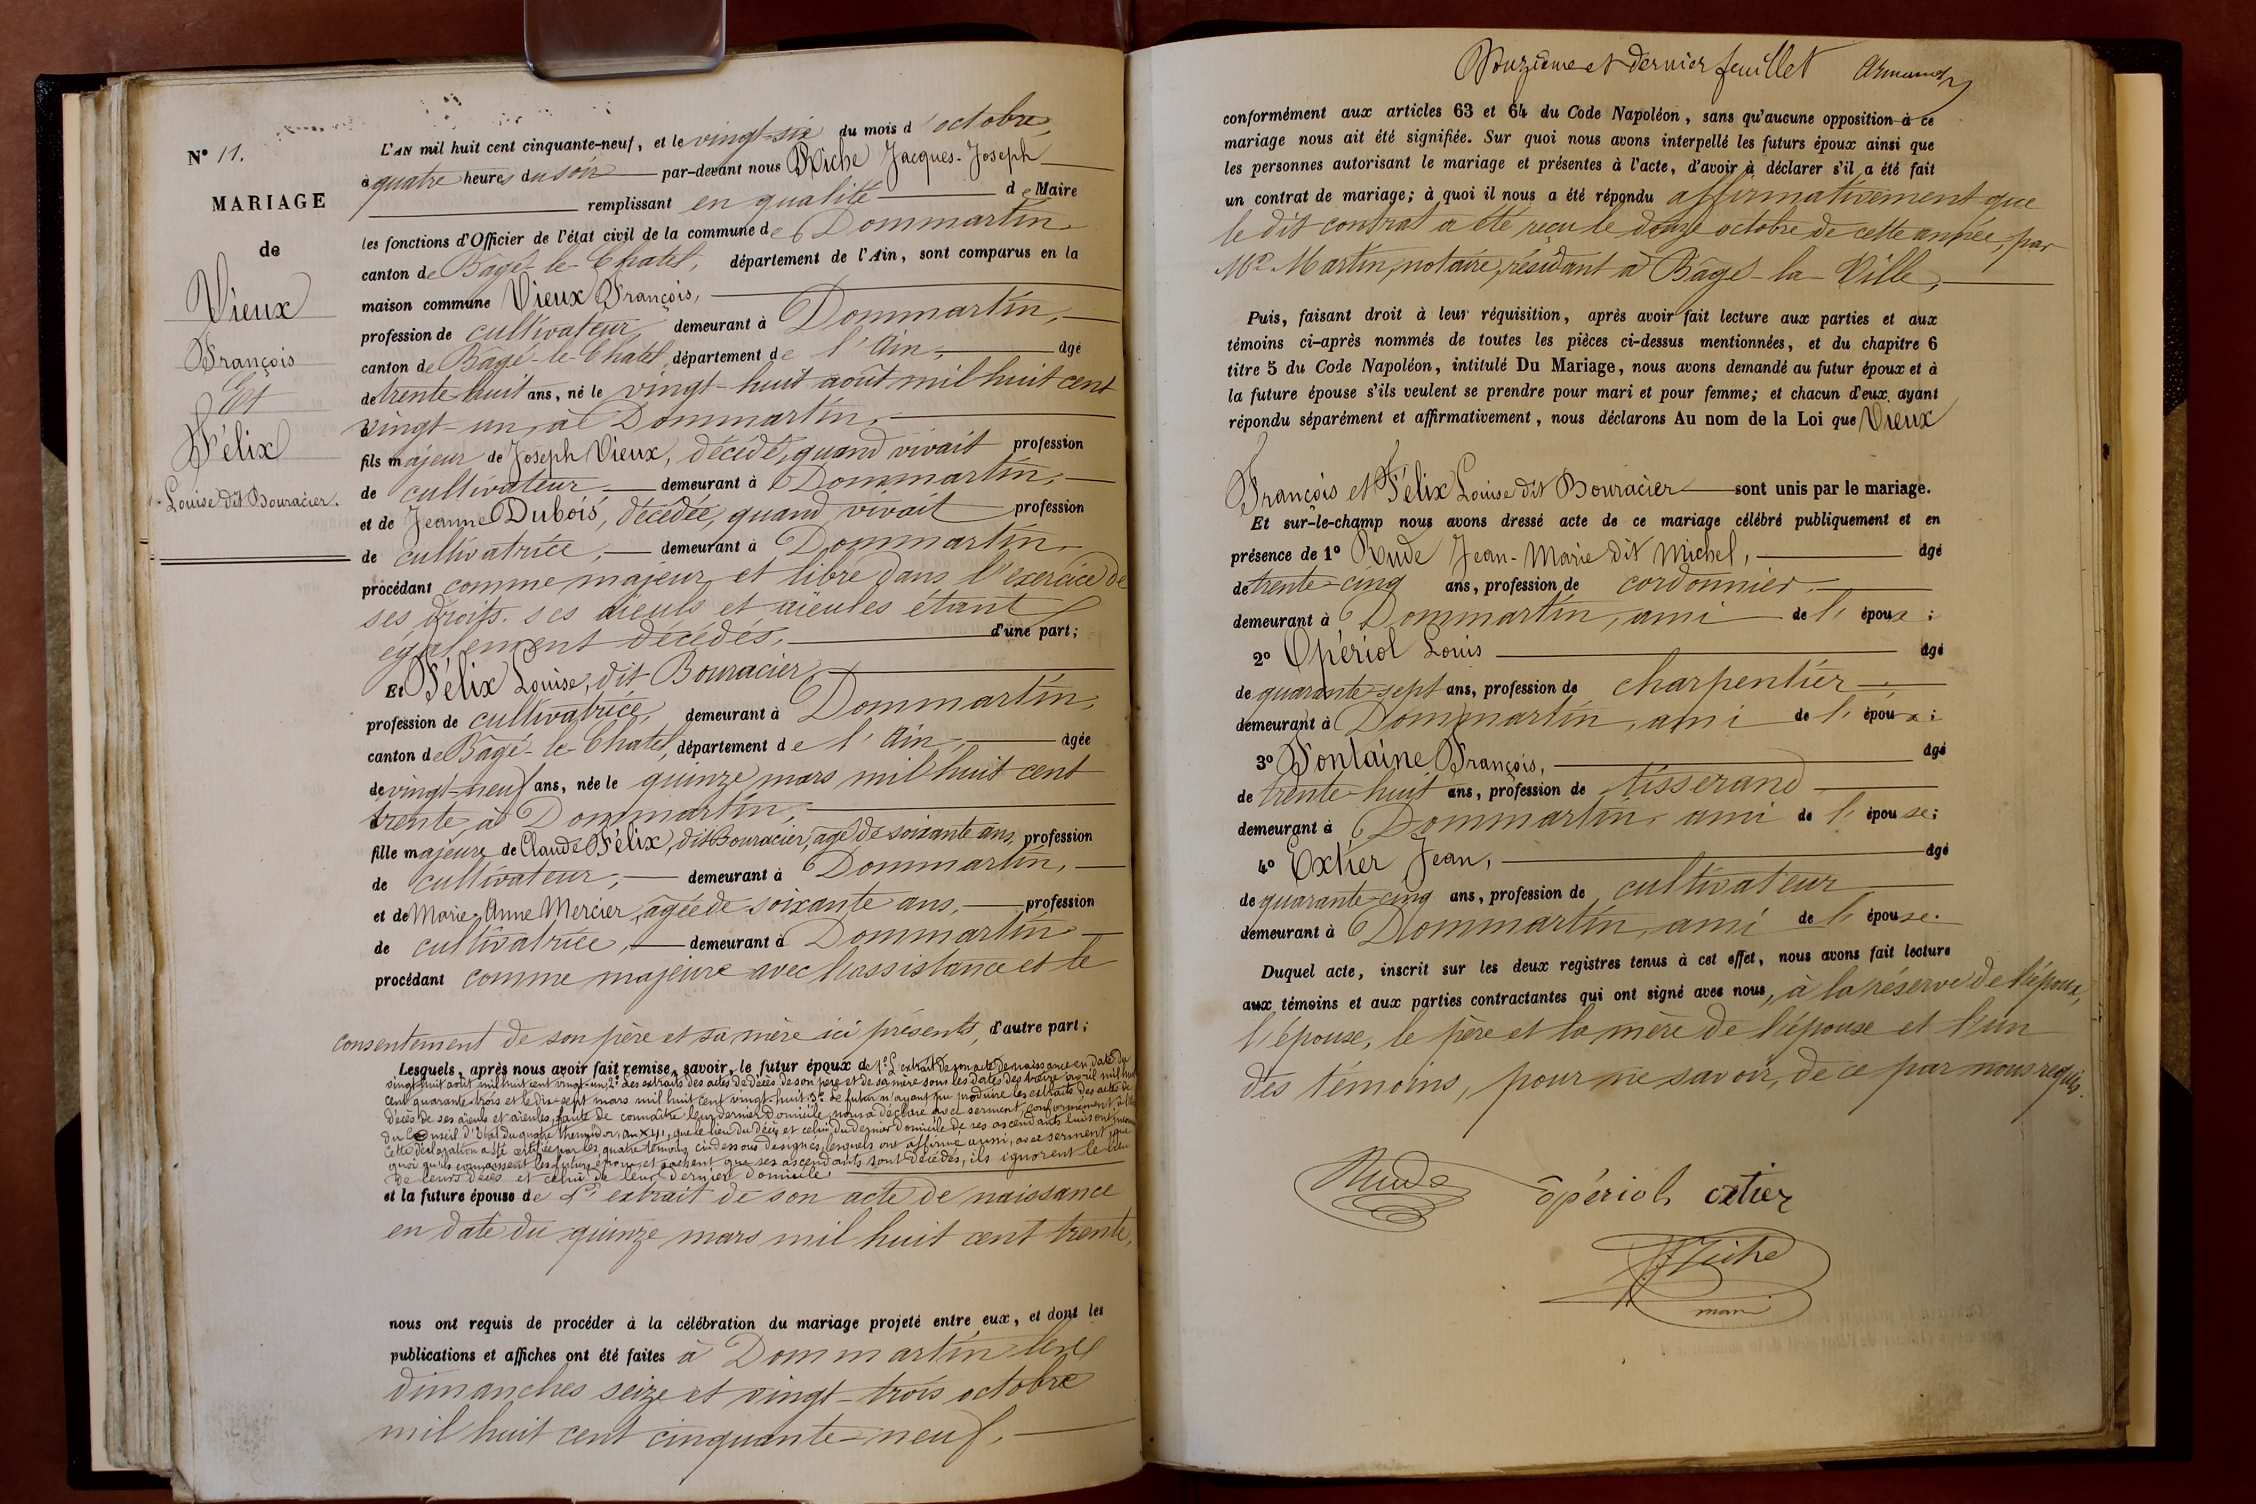 N° 11.
MARIAGE
de
Vieux
François
Et
Félix
Louise dit Bouracier.
L'AN mil huit cent cinquante-neuf, et le vingt-six du mois d'octobre,
à quatre heures du soir par-devant nous Riche Jacques-Joseph
remplissant en qualité de Maire
les fonctions d'Officier de l'état civil de la commune de Dommartin
canton de Bâgé-le-Chatel, département de l'Ain, sont comparus en la
maison commune Vieux François,
profession de cultivateur, demeurant à Dommartin,
canton de Bâgé-le-Chatel, département de l'Ain, âgé
de trente-huit ans, né le vingt-huit août mil huit cent
vingt-un, à Dommartin,
fils majeur de Joseph Vieux, décédé, quand vivait profession
de cultivateur demeurant à Dommartin,
et de Jeanne Dubois, décédée, quand vivait profession
de cultivatrice, demeurant à Dommartin
procédant comme majeur et libre dans l'exercice de
ses droits. ses aïeuls et aïeules étant
également décédés, d'une part;
Et Félix Louise, dit Bouracier,
profession de cultivatrice, demeurant à Dommartin,
canton de Bâgé-le-Chatel, département de l'Ain, âgée
de vingt-neuf ans, née le quinze mars mil huit cent
trente, à Dommartin,
fille majeure de Claude Félix, dit Bouracier, âgé de soixante ans, profession
de cultivateur, demeurant à Dommartin,
et de Marie-Anne Mercier, âgée de soixante ans, profession
de cultivatrice, demeurant à Dommartin
procédant comme majeure avec l'assistance et le
consentement de son père et sa mère ici présents, d'autre part;
Lesquels, après nous avoir fait remise, savoir, le futur époux de 1° L'extrait de son acte de naissance en date du
vingt-huit août mil huit cent vingt-un; 2° des extraits des actes de décès de son père et de sa mère sous les dates des treize avril mil huit
cent quarante-trois et le dix-sept mars mil huit cent vingt-huit; 3° le futur n'ayant pu produire les extraits des actes de
décès de ses aïeuls et aïeules, faute de connaître leur dernier domicile, nous a déclaré avec serment, conformément à
du Conseil d'Etat du quatre thermidor, an XIII, que le lieu du décès et celui du dernier domicile de ses ascendants lui sont
Cette déclaration a été certifiée par les quatre témoins ci-dessous désignés, lesquels ont affirmé aussi, avec serment, que
quoi qu'ils connaissent les futurs époux, et sachent que ses ascendants sont décédés, ils ignorent le lieu
de leurs décès et celui de leur dernier domicile
et la future épouse de L'extrait de son acte de naissance
en date du quinze mars mil huit cent trente,
nous ont requis de procéder à la célébration du mariage projeté entre eux, et dont les
publications et affiches ont été faites à Dommartin les
dimanches seize et vingt-trois octobre
mil huit cent cinquante-neuf,
Douzième et dernier feuillet
conformément aux articles 63 et 64 du Code Napoléon, sans qu'aucune opposition à ce
mariage nous ait été signifiée. Sur quoi nous avons interpellé les futurs époux ainsi que
les personnes autorisant le mariage et présentes à l'acte, d'avoir à déclarer s'il a été fait
un contrat de mariage; à quoi il nous a été répondu affirmativement que
le dit contrat a été reçu le douze octobre de cette année, par
Me Martin, notaire, résidant à Bâgé-la-Ville,
Puis, faisant droit à leur réquisition, après avoir fait lecture aux parties et aux
témoins ci-après nommés de toutes les pièces ci-dessus mentionnées, et du chapitre 6
titre 5 du Code Napoléon, intitulé Du Mariage, nous avons demandé au futur époux et à
la future épouse s'ils veulent se prendre pour mari et pour femme; et chacun d'eux ayant
répondu séparément et affirmativement, nous déclarons Au nom de la Loi que Vieux
François et Félix Louise dit Bouracier sont unis par le mariage.
Et sur-le-champ nous avons dressé acte de ce mariage célébré publiquement et en
présence de 1° Rude Jean-Marie dit Michel, âgé
de trente-cinq ans, profession de cordonnier
demeurant à Dommartin, ami de l'époux;
2° Opériol Louis âgé
de quarante-sept ans, profession de charpentier
demeurant à Dommartin, ami de l'époux;
3° Fontaine François, âgé
de trente-huit ans, profession de tisserand
demeurant à Dommartin, ami de l'épouse;
4° Extier Jean, âgé
de quarante-cinq ans, profession de cultivateur
demeurant à Dommartin, ami de l'épouse.
Duquel acte, inscrit sur les deux registres tenus à cet effet, nous avons fait lecture
aux témoins et aux parties contractantes qui ont signé avec nous, à la réserve de l'époux,
l'épouse, le père et la mère de l'épouse et l'un
des témoins, pour ne savoir, de ce par nous requis.
Rude opériol extier
Riche
maire